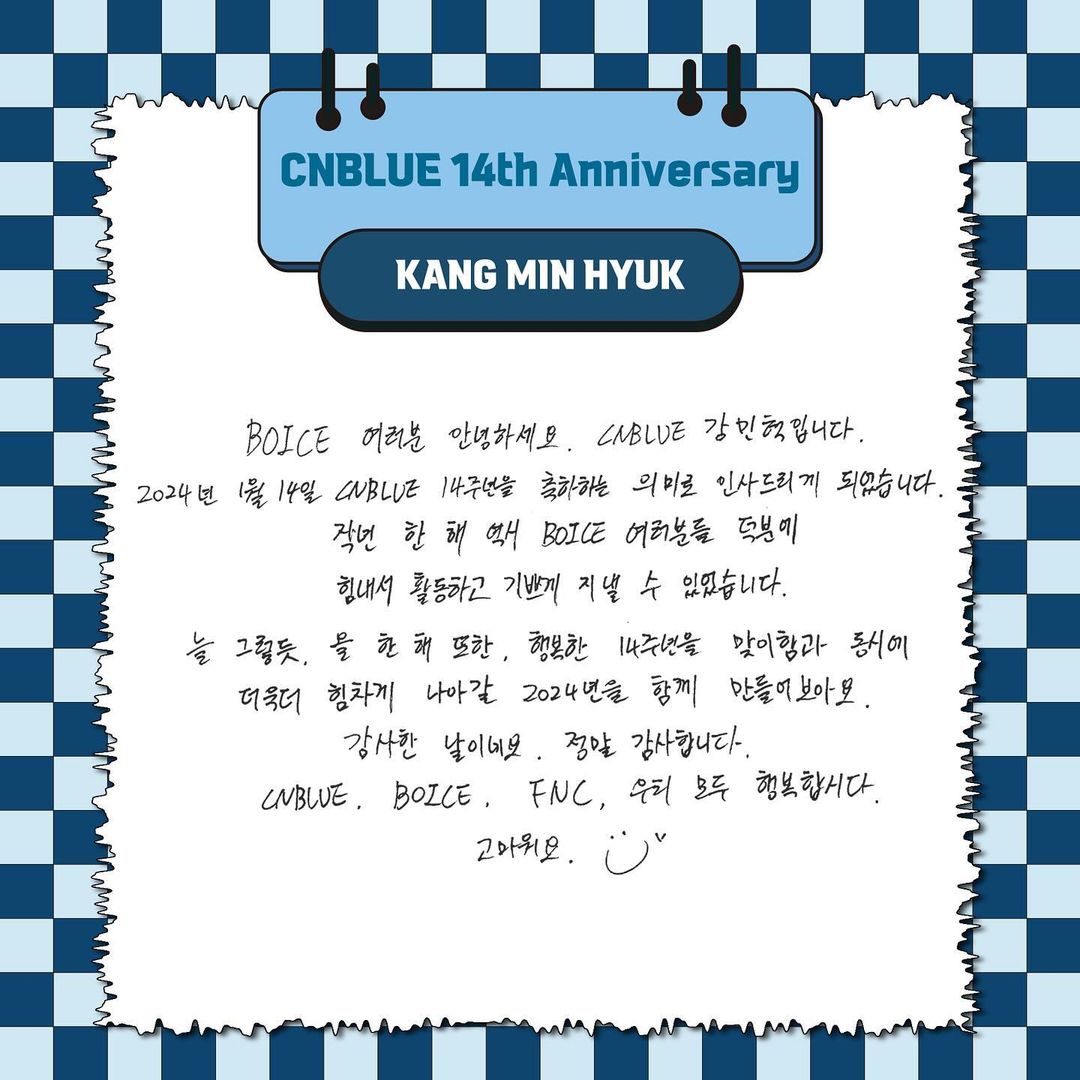 CNBLUE 14th Anniversary
KANG MIN HYUK
BOICE 여러분 안녕하세요. CNBLUE 강민혁입니다.
2024년 1월 14일 CNBLUE 14주년을 축하하는 의미로 인사드리게 되었습니다.
작년 한 해 역시 BOICE 여러분들 덕분에
힘내서 활동하고 기쁘게 지낼 수 있었습니다.
늘 그렇듯, 올 한 해 또한, 행복한 14주년을 맞이함과 동시에
더욱더 힘차게 나아갈 2024년을 함께 만들어보아요.
감사한 날이네요. 정말 감사합니다.
CNBLUE, BOICE, FNC, 우리 모두 행복합시다.
고마워요.